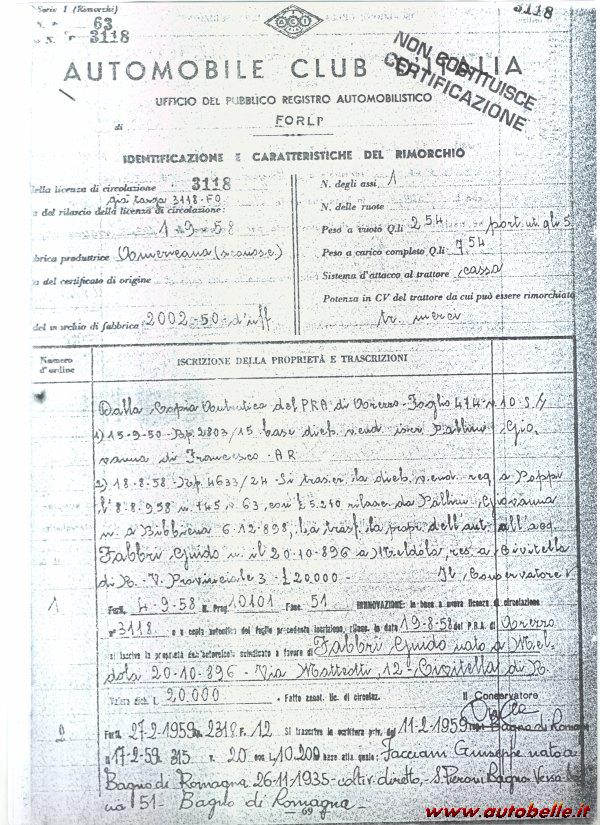 Serie 1 (Rimorchi)
N. 63
N. F 3118
3118
ACI
AUTOMOBILE CLUB D'ITALIA
NON COSTITUISCE
CERTIFICAZIONE
UFFICIO DEL PUBBLICO REGISTRO AUTOMOBILISTICO
di FORLI'
IDENTIFICAZIONE E CARATTERISTICHE DEL RIMORCHIO
della licenza di circolazione 3118
già targa 3118-FO
a del rilascio della licenza di circolazione:
1-9-58
abbrica produttrice Americana
a del certificato di origine
del marchio di fabbrica 2002-50 d'uff
N. degli assi 1
N. delle ruote
Peso a vuoto Q.li 2.54 port. ut. qli 5
Peso a carico completo Q.li 7.54
Sistema d'attacco al trattore cassa
Potenza in CV del trattore da cui può essere rimorchiato
tr. merci
Numero d'ordine
ISCRIZIONE DELLA PROPRIETÀ E TRASCRIZIONI
Dalla Copia Autentica del PRA di Arezzo - Foglio 474 - n. 10 S/4
1) 15-9-50 - Rp. 2803/15 base dich. vend. iscr. Pallini Gio
vanna di Francesco - AR
2) 18-8-58 Rp. 4633/24 - Si trascr. la dich. vend. reg. a Poppi
l'8.8.958 n. 145 v. 63, con £ 5.210 rilasc. da Pallini Giovanna
n. a Bibbiena 6-12-898, la trasf. la propr. dell'aut. all'acq.
Fabbri Guido n. il 20-10-896 a Meldola, res. a Civitella
di R. V. Provinciale 3 - £ 20.000 - Il Conservatore
1
Forlì, 4-9-58 N. Prog. 10101 Fasc. 51 RINNOVAZIONE: in base a nuova licenza di circolazione
n° 3118 e a copia autentica del foglio precedente iscrizione, rilasc. in data 19-8-58 del P.R.A. di Arezzo
si iscrive la proprietà dell'autoveicolo suindicato a favore di Fabbri Guido nato a Mel-
dola 20-10-896 - Via Matteotti, 12 - Civitella di R.
Valore dich. L. 20.000 - Fatto annot. lic. di circolaz. Il Conservatore
2
Forlì, 27-2-1959 n. 2318 F. 12 Si trascrive la scrittura priv. del 11-2-1959 Bagno di Romagna
n. 17-2-59 315 v. 20 con L. 10.200 base alla quale: Facciani Giuseppe nato a
Bagno di Romagna 26-11-1935 - coltiv. diretto, - S. Pieroni Bagno Versa
51 - Bagno di Romagna
— 69 —
www.autobelle.it